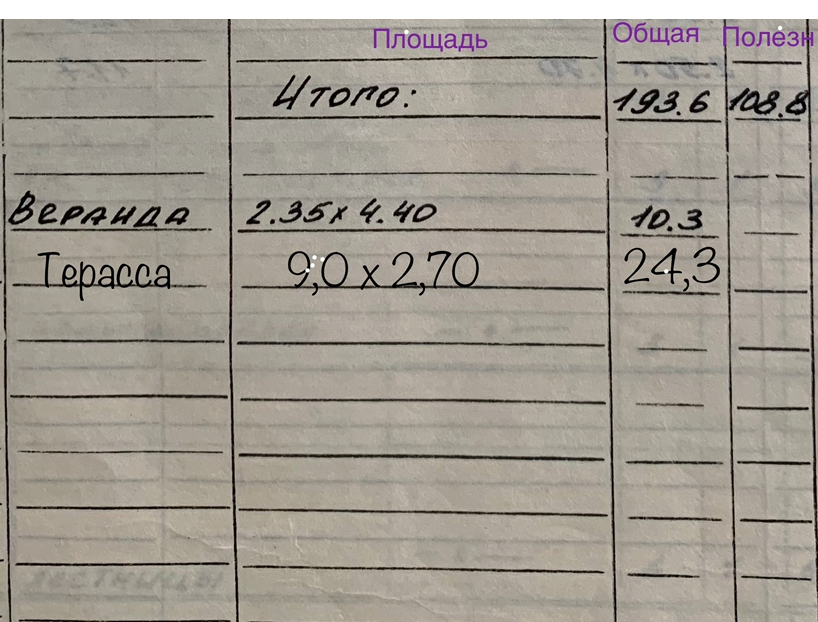 Площадь Общая Полезн
Итого: 193.6 108.8
Веранда 2.35 x 4.40 10.3
Терасса 9,0 x 2,70 24,3